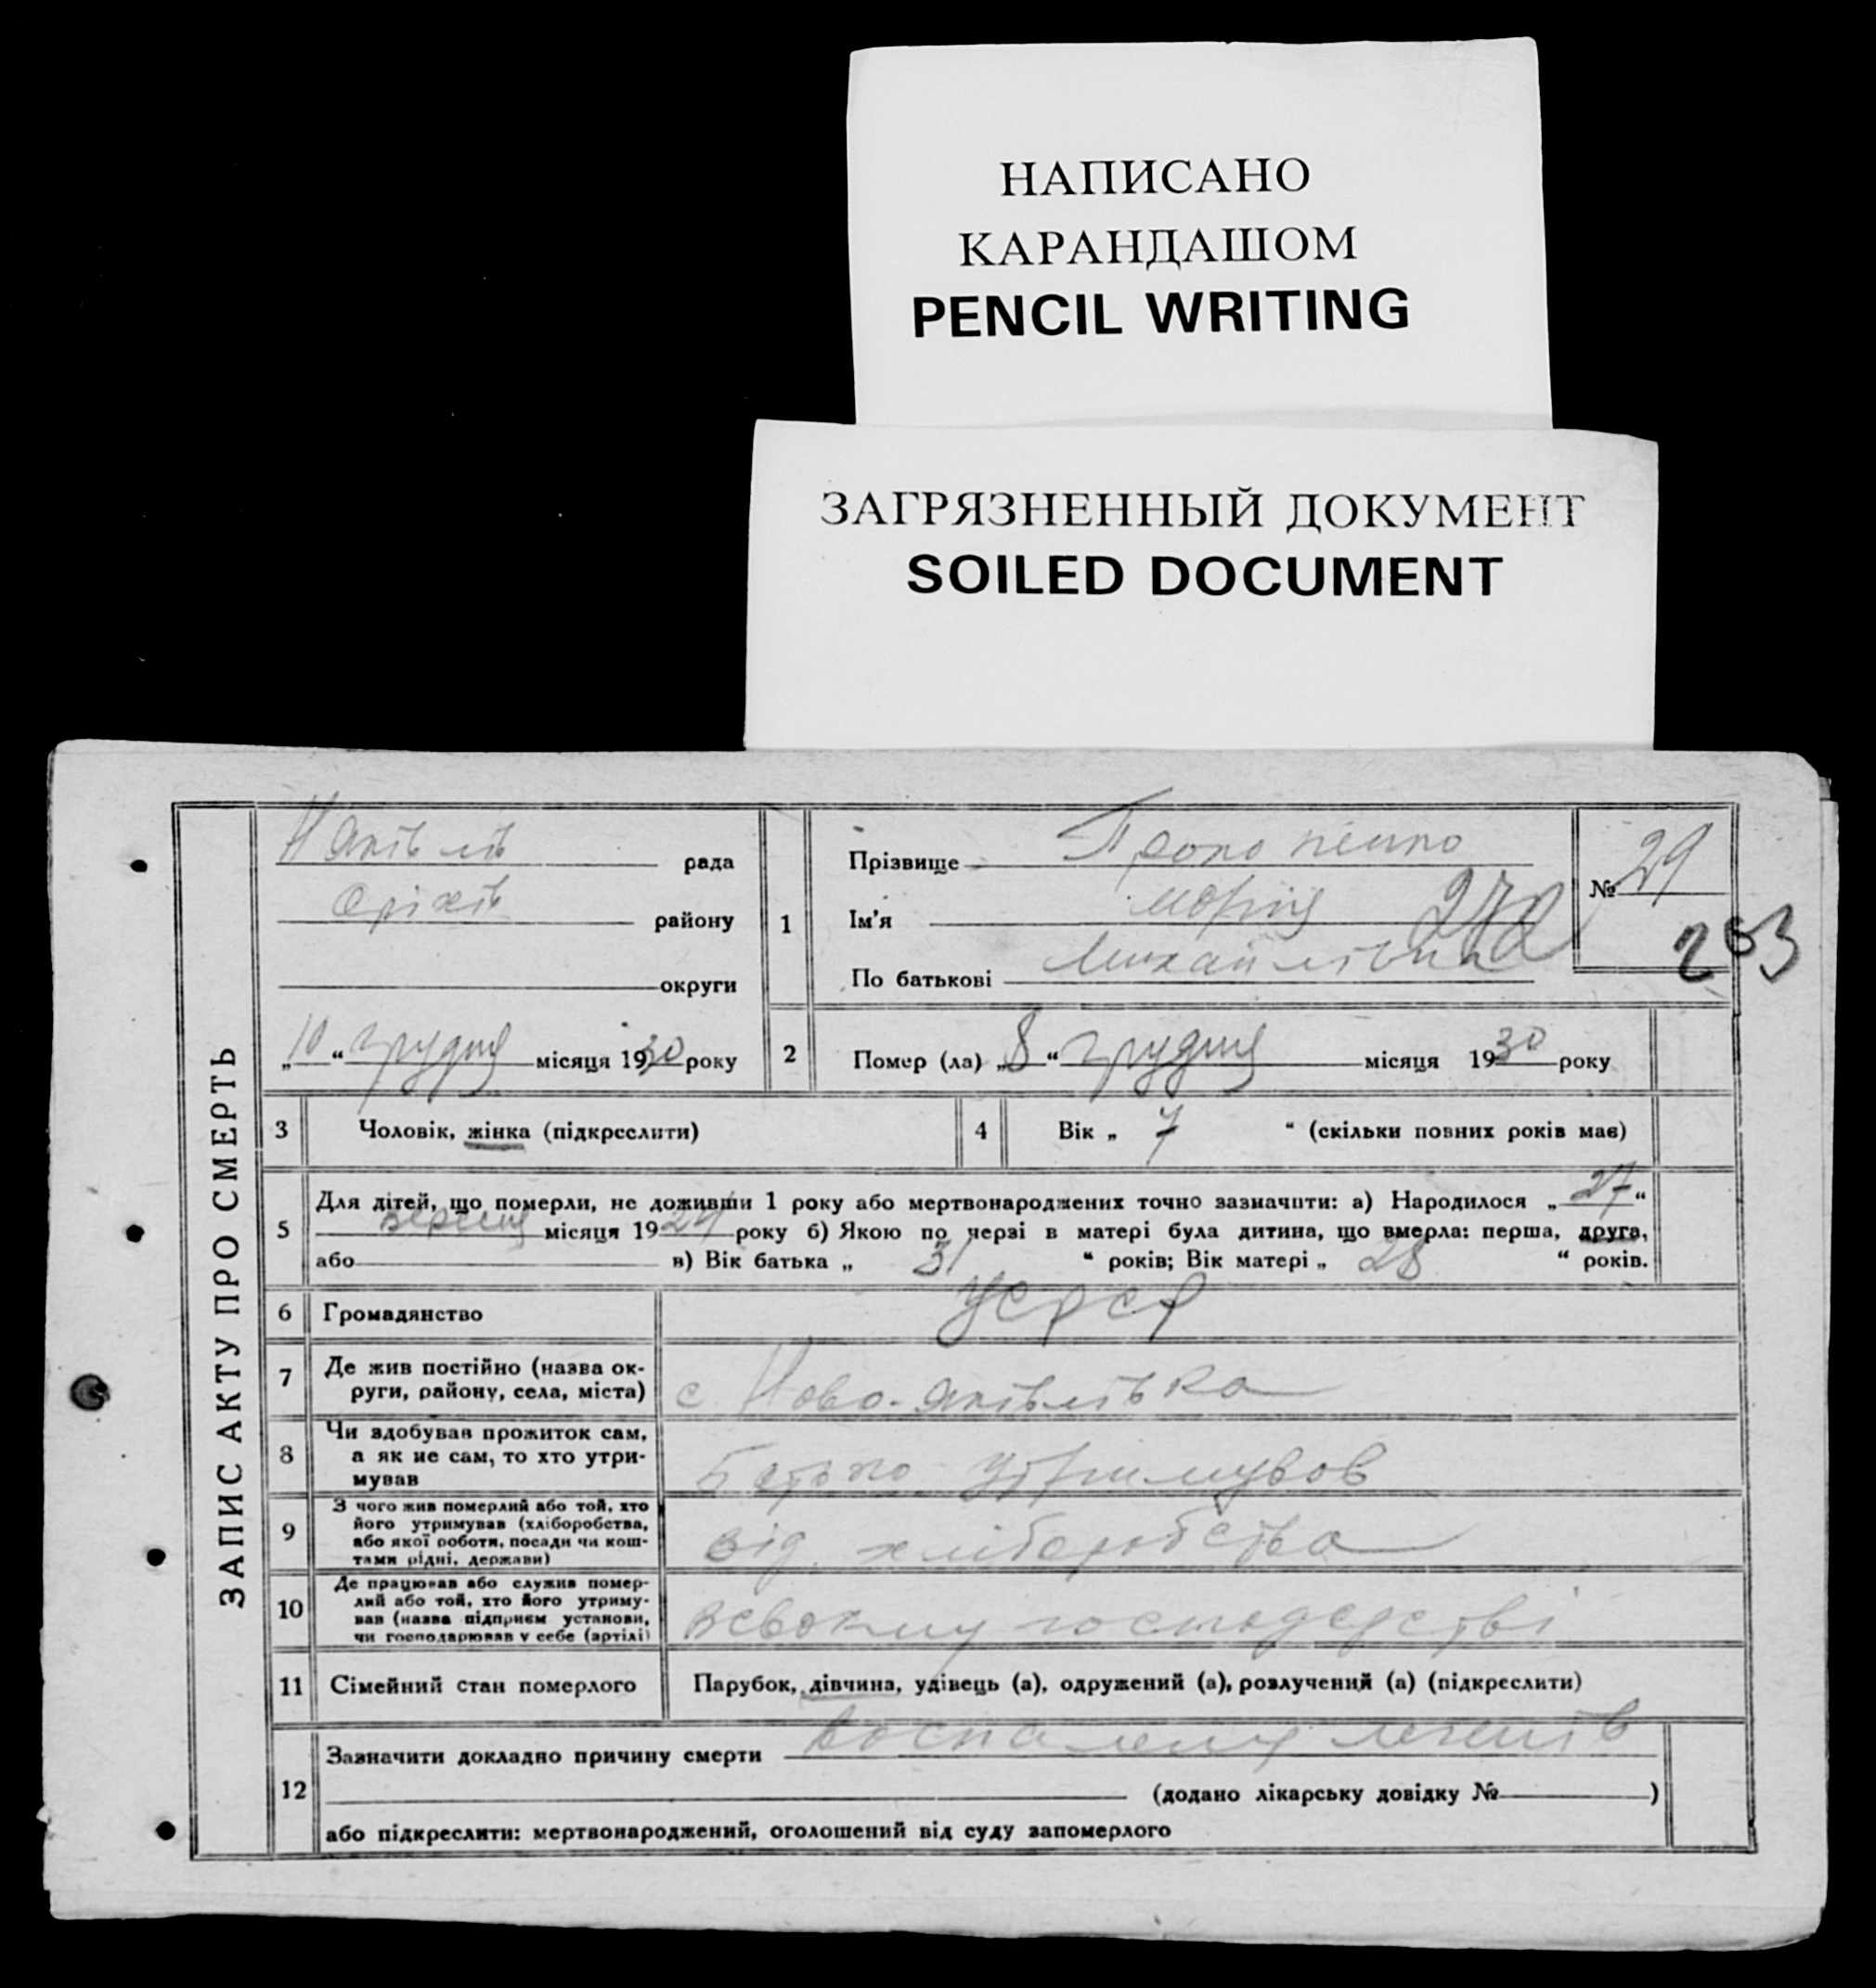 НАПИСАНО
КАРАНДАШОМ
PENCIL WRITING
ЗАГРЯЗНЕННЫЙ ДОКУМЕНТ
SOILED DOCUMENT
ЗАПИС АКТУ ПРО СМЕРТЬ
Н Яківлів рада
Оріхів району
округи
„10“ грудня місяця 1930 року
1
Прізвище
Ім'я Марія
По батькові Михайлівна
№ 29
272
263
2 Помер (ла) „8“ грудня місяця 1930 року
3 Чоловік, жінка (підкреслити)
4 Вік „ 7 “ (скільки повних років має)
5 Для дітей, що померли, не доживши 1 року або мертвонароджених точно зазначити: а) Народилося „27“
вересня місяця 192 року б) Якою по черзі в матері була дитина, що вмерла: перша, друга,
або в) Вік батька „ 31 “ років; Вік матері „ 28 “ років.
6 Громадянство УСРСР
7 Де жив постійно (назва ок-
руги, району, села, міста) с. Ново-Яківлівка
8 Чи здобував прожиток сам,
а як не сам, то хто утри-
мував Батько утримував
9 З чого жив померлий або той, хто
його утримував (хліборобства,
або якої роботи, посади чи кош-
тами рідні, держави) від хліборобства
10 Де працював або служив помер-
лий або той, хто його утриму-
вав (назва підприєм установи,
чи господарював у себе (артілі) всвоєму господарстві
11 Сімейний стан померлого Парубок, дівчина, удівець (а), одружений (а), розлучений (а) (підкреслити)
12 Зазначити докладно причину смерти воспаленя легенів
(додано лікарську довідку № )
або підкреслити: мертвонароджений, оголошений від суду запомерлого